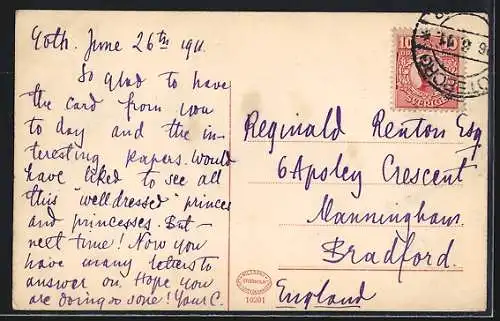 Goth. June 26th 1911.
So glad to have
the card from you
to day and the in-
teresting papers. Would
have liked to see all
this "welldressed" princes
and princesses. But -
next time! Now you
have many letters to
answer on. Hope you
are doing so some! Your C.
10
10
SVERIGE
Reginald Renton Esq
6 Apsley Crescent
Manningham
Bradford.
England
10201